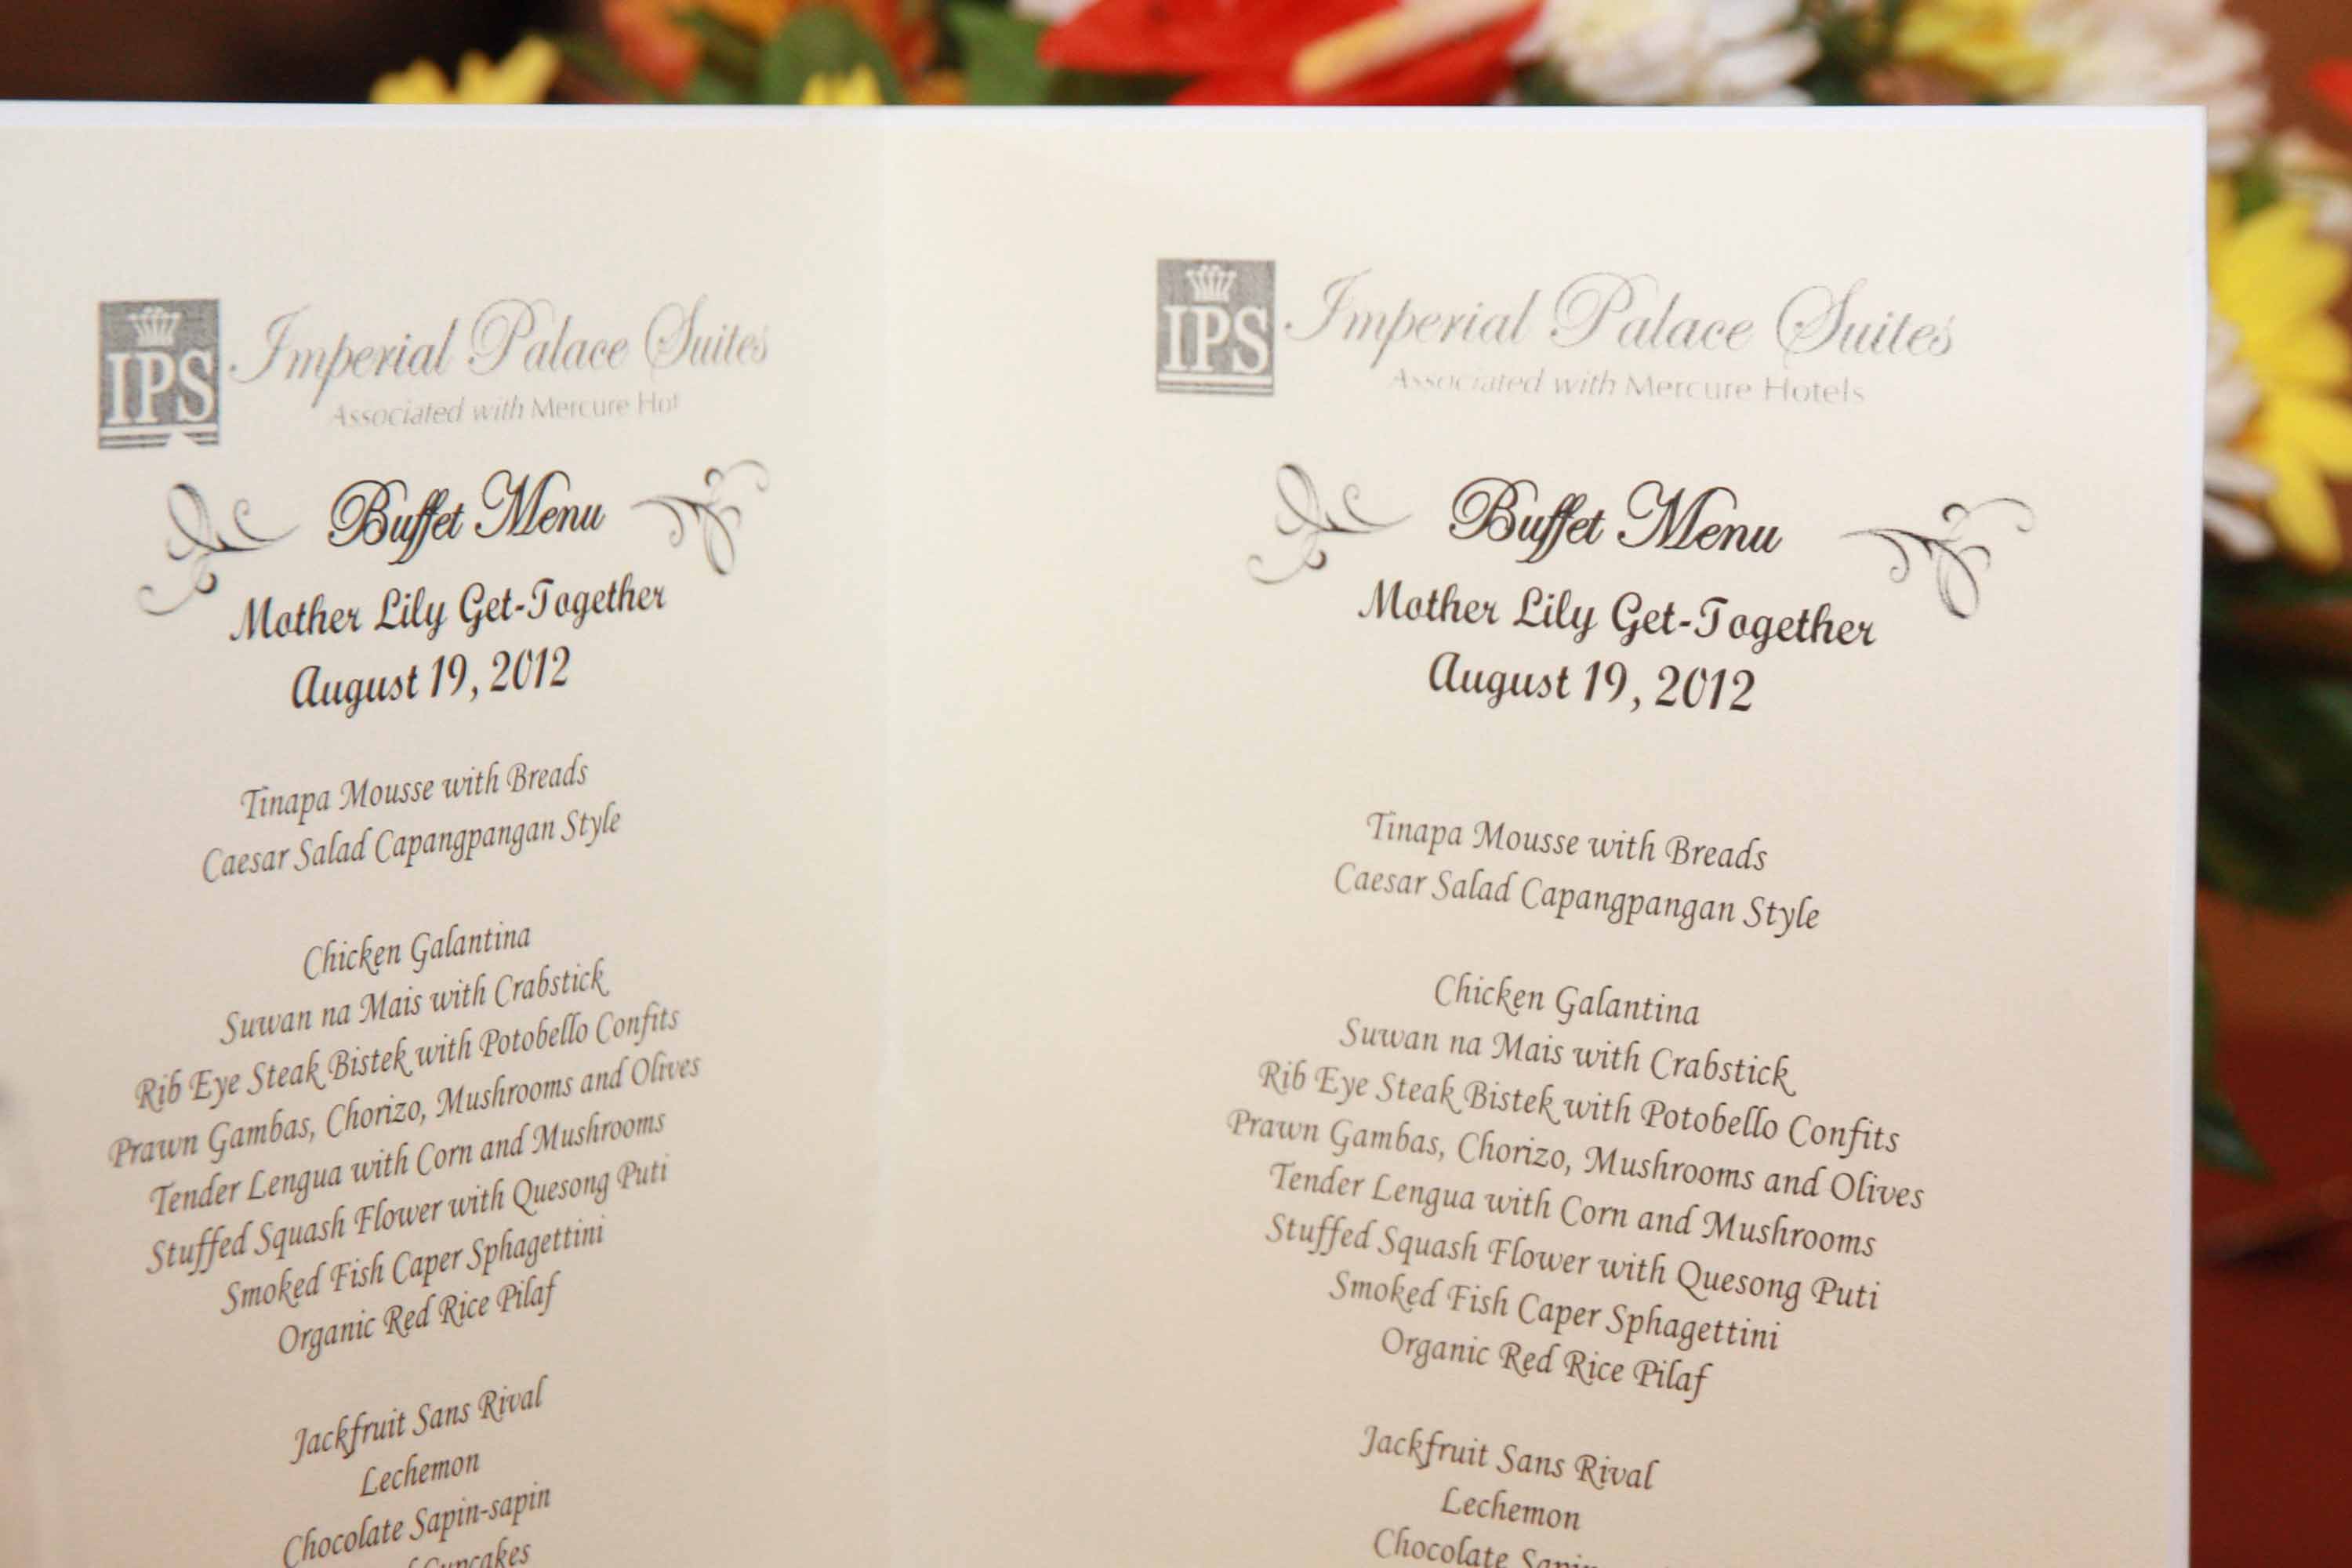 IPS Imperial Palace Suites
Associated with Mercure Hot
Buffet Menu
Mother Lily Get-Together
August 19, 2012
Tinapa Mousse with Breads
Caesar Salad Capangpangan Style
Chicken Galantina
Suwan na Mais with Crabstick
Rib Eye Steak Bistek with Potobello Confits
Prawn Gambas, Chorizo, Mushrooms and Olives
Tender Lengua with Corn and Mushrooms
Stuffed Squash Flower with Quesong Puti
Smoked Fish Caper Sphagettini
Organic Red Rice Pilaf
Jackfruit Sans Rival
Lechemon
Chocolate Sapin-sapin
Cupcakes
IPS Imperial Palace Suites
Associated with Mercure Hotels
Buffet Menu
Mother Lily Get-Together
August 19, 2012
Tinapa Mousse with Breads
Caesar Salad Capangpangan Style
Chicken Galantina
Suwan na Mais with Crabstick
Rib Eye Steak Bistek with Potobello Confits
Prawn Gambas, Chorizo, Mushrooms and Olives
Tender Lengua with Corn and Mushrooms
Stuffed Squash Flower with Quesong Puti
Smoked Fish Caper Sphagettini
Organic Red Rice Pilaf
Jackfruit Sans Rival
Lechemon
Chocolate